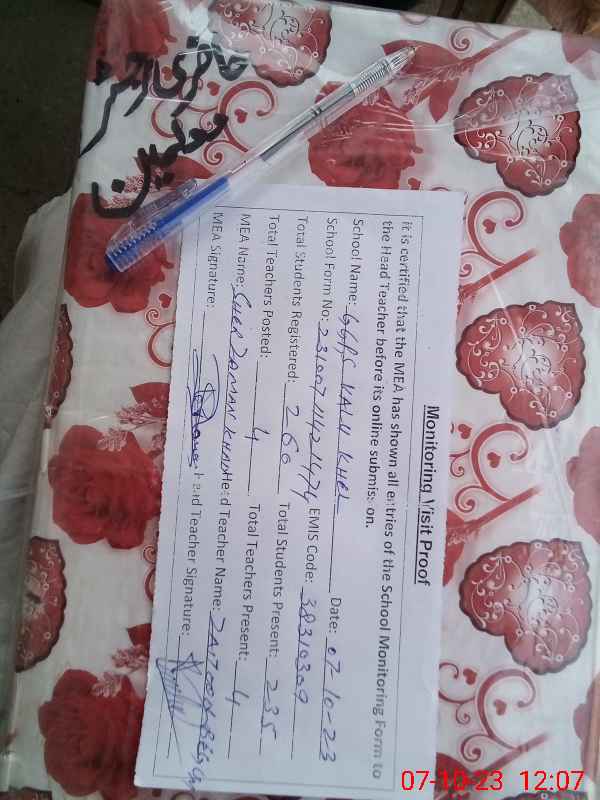 حاضری رجسٹر
معلمین
Monitoring Visit Proof
It is certified that the MEA has shown all entries of the School Monitoring Form to
the Head Teacher before its online submission.
School Name: GGPS WALI KHEL Date: 07-10-23
School Form No: EMIS Code: 38310309
Total Students Registered: 260 Total Students Present: 235
Total Teachers Posted: 4 Total Teachers Present: 4
MEA Name: SHER ZAMAN KHAN Head Teacher Name: ZAITOON BEGUM
MEA Signature: Head Teacher Signature:
07-10-23 12:07